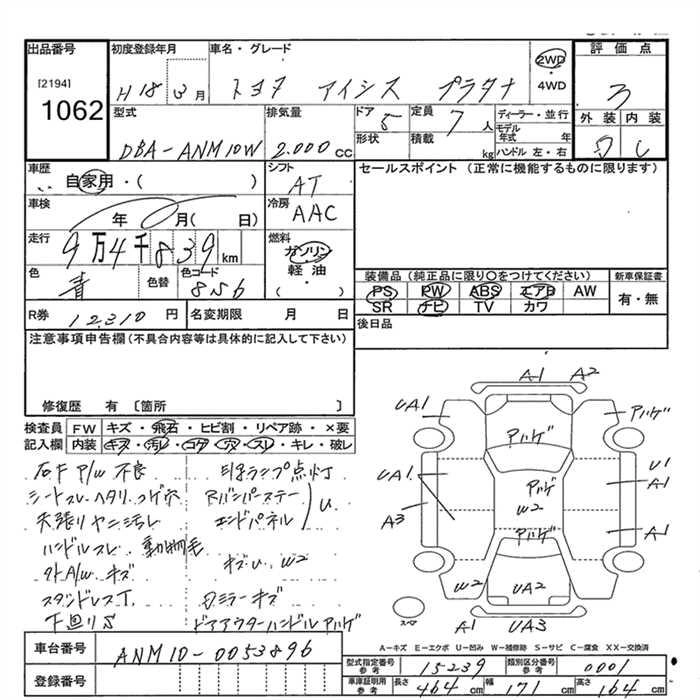 出品番号 初度登録年月 車名・グレード 評価点
[2194]
1062
H18 3月 トヨタ アイシス プラタナ 2WD・4WD 3
型式 排気量 ドア 5 定員 7人 ディーラー・並行 外装 内装
形状 積載 kg モデル年式 年 ハンドル 左・右
DBA-ANM10W 2.000cc C
車歴 シフト セールスポイント (正常に機能するものに限ります)
自家用・( ) AT
車検 冷房
年 月( 日) AAC
走行 燃料
9万4千839km ガソリン
色 色替 色コード 軽油
青 8S6 ( )
装備品(純正品に限り○をつけてください) 新車保証書
PS PW ABS エアB AW 有・無
SR ナビ TV カワ
R券 12,310円 名変期限 月 日 後日品
注意事項申告欄(不具合内容等は具体的に記入して下さい)
修復歴 有 [箇所 ]
検査員 FW キズ・飛石・ヒビ割・リペア跡・×要
記入欄 内装 キズ・汚レ・コゲ・穴・スレ・キレ・破レ
右F P/W 不良 球ランプ点灯
シートスレ ヘタリ コゲ穴 Rバンパーステー
天張リ ヤニ汚レ エンドパネル U
ハンドルスレ 動物毛
外A/W キズ キズU、W2
スタンドレスT. ミラーキズ
下廻リS ドアアウターハンドル アハゲ
A1 A2
UA1 アハゲ アハゲ
UA1 アハゲ U1
W2 A1
A3 アハゲ A1
W2 UA2 W2
スペア A1 UA3
A-キズ E-エクボ U-凹み W-補修跡 S-サビ C-腐食 XX-交換済
車台番号 ANM10-0053896
登録番号
型式指定番号 参考 15239 類別区分番号 参考 0001
車庫証明用 参考 長さ 464cm 幅 171cm 高さ 164cm